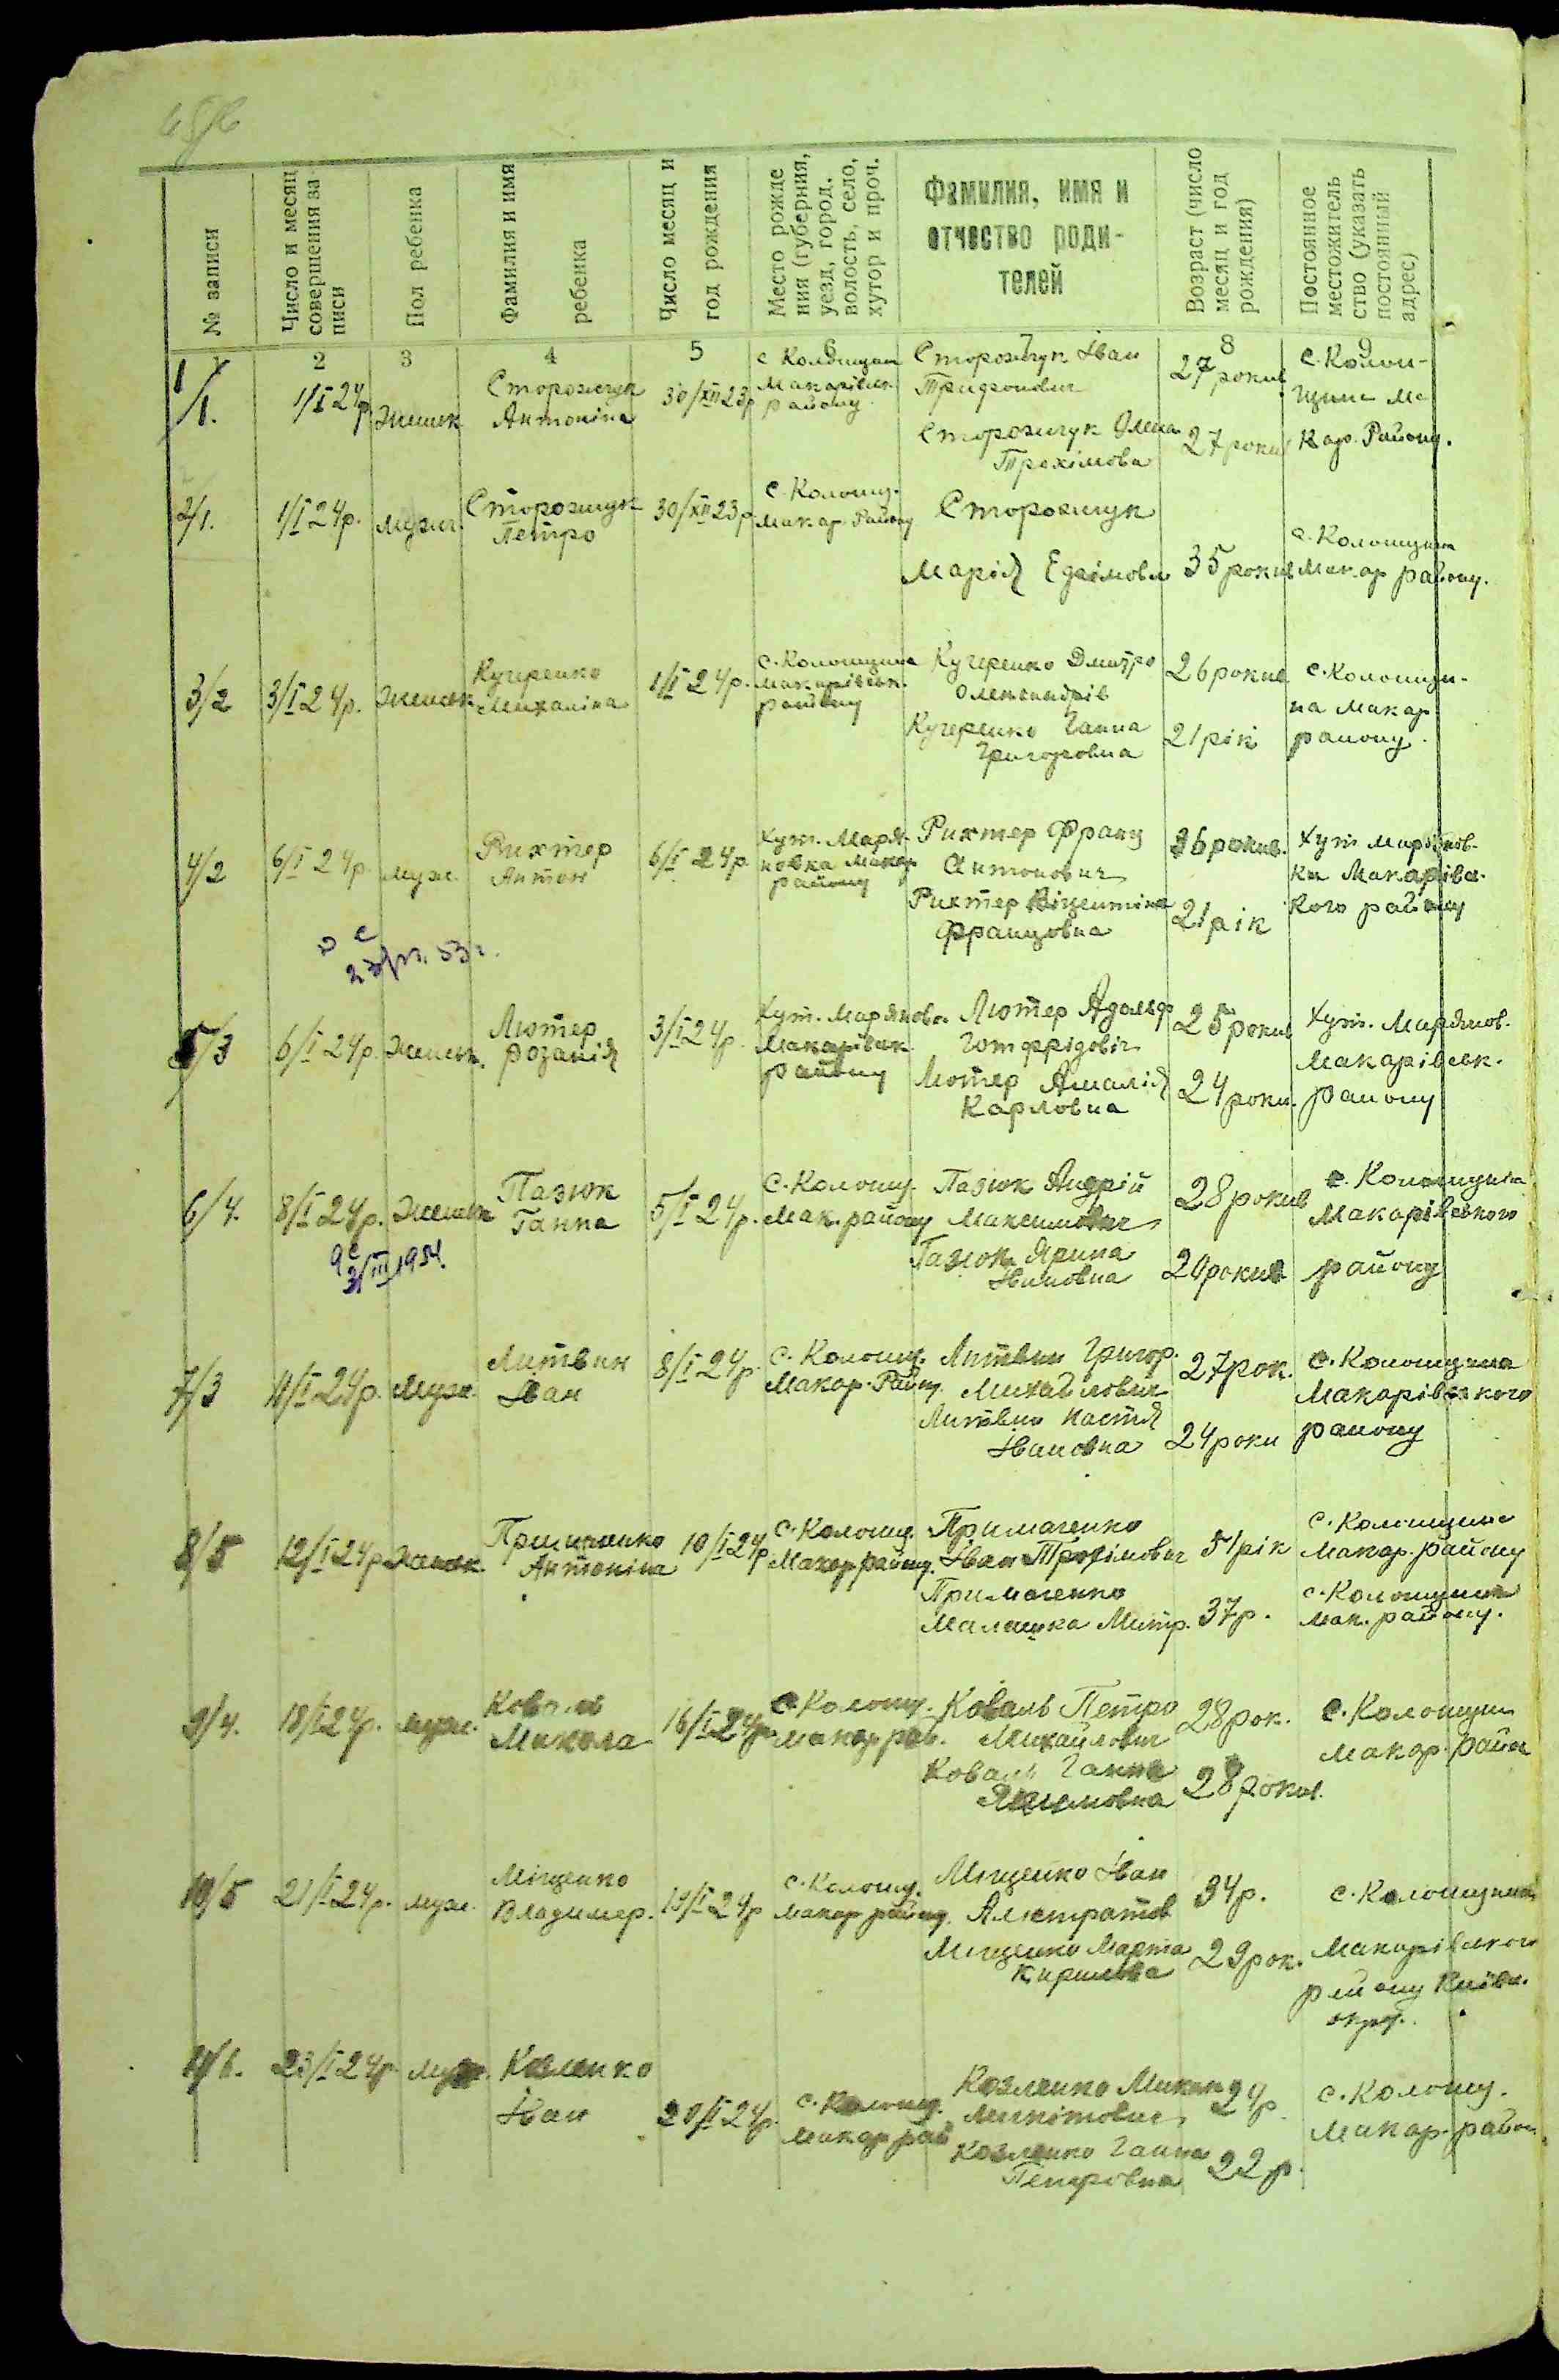 № записи
Число и месяц
совершения за
писи
Пол ребенка
Фамилия и имя
ребенка
Число месяц и
год рождения
Место рожде
ния (губерния,
уезд, город,
волость, село,
хутор и проч.
Фамилия, имя и
отчество роди-
телей
Возраст (число
месяц и год
рождения)
Постоянное
местожитель
ство (указать
постоянный
адрес)
2 3 4 5 6 7 8 9
1/1. 1/I 24р. Женськ
Сторожук
Антоніна
30/XII 23р
с Колонщин
Макарівск.
району
Сторожук Іван
27 роки
Сторожук Олена
Трохімовн
27 роки
с. Колон-
щина Ма
кар. Району.
2/1. 1/I 24р. мужч.
Сторожук
Петро
30/XII 23р
с. Колонщ.
Макар Району
Сторожук
Марія Ехрімовн
35 роки
с. Колонщина
Макар району.
3/2 3/I 24р. Женськ
Кучеренко
Михаліна
1/I 24р.
с. Колонщина
Макарівськ.
району
Кучеренко Дмитро
Олександрів
26 роки
Кучеренко Ганна
Григоровна
21 рік
с. Колонщи-
на Макар
району.
4/2 6/I 24р. муж.
Рихтер
Антон
6/I 24р.
Хут. Маря-
новка Макар
району
Рихтер Франц
Антонович
36 роки.
Рихтер Віцентіна
Францовна
21 рік
Хут Марянов-
ки Макарівс-
кого району
5/3 6/I 24р. Женськ.
Лютер
Розалія
3/I 24р.
Хут. Маряновк
Макарівск
району
Лютер Адольф
Готфрідовіч
25 роки
Лютер Амалія
Карловна
24 роки.
Хут. Марянов.
Макарівськ.
району
6/4. 8/I 24р. Женськ
3/III 1954.
Пазюк
Ганна
5/I 24р.
с. Колонщ.
Мак. району
Пазюк Андрій
Максимович
28 років
Пазюк Ярина
Івановна
с. Колонщина
Макарівського
району
7/3 11/I 24р. муж.
Литвин
Іван
8/I 24р.
с. Колонщ.
Макар. Району
Литвин Григор.
Михайлович
27 рок.
Литвин Настя
Івановна
24 роки
с. Колонщина
Макарівского
району
8/5 12/I 24р. Женск.
Примаченко
Антоніна
10/I 24р.
с. Колонщ.
Макар району.
Примаченко
Іван Трохімович
Примаченко
Малашка Митр.
37р.
с. Колонщина
Макар. району
с. Колонщина
Мак. району.
9/4. 18/I 24р. муж.
Коваль
Микола
16/I 24р.
с. Колонщ.
Макар рай.
Коваль Петро
Михайлович
28 рок.
Коваль Ганна
Якимовна
28 роки.
с. Колонщин
Макар. район
10/5 21/I 24р. муж.
Міщенко
Владимер.
19/I 24р
с. Колонщ.
Макар району.
Міщенко Іван
34р.
Міщенко Марта
Кирилівна
29 рок.
с. Колонщини
Макарівского
району Київс.
окр.
11/6. 23/I 24р. муж.
Козленко
Іван
20/I 24р.
с. Колонщ.
Макар рай
Козленко Микит
Микітович
Козленко Ганна
Петровна
22р.
с. Колонщ.
Макар. район